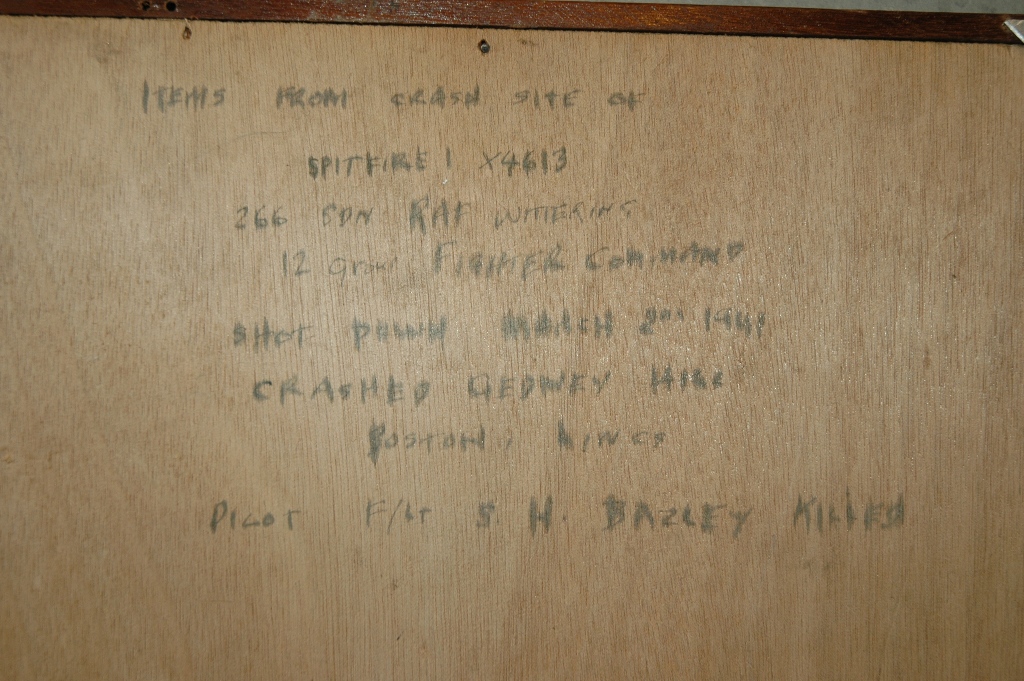 ITEMS FROM CRASH SITE OF
SPITFIRE I X4613
266 SDN RAF WITTERING
12 Group FIGHTER COMMAND
SHOT DOWN MARCH 2ND 1941
CRASHED GEDNEY HILL
BOSTON, LINCS
PILOT F/LT S. H. BAZLEY KILLED